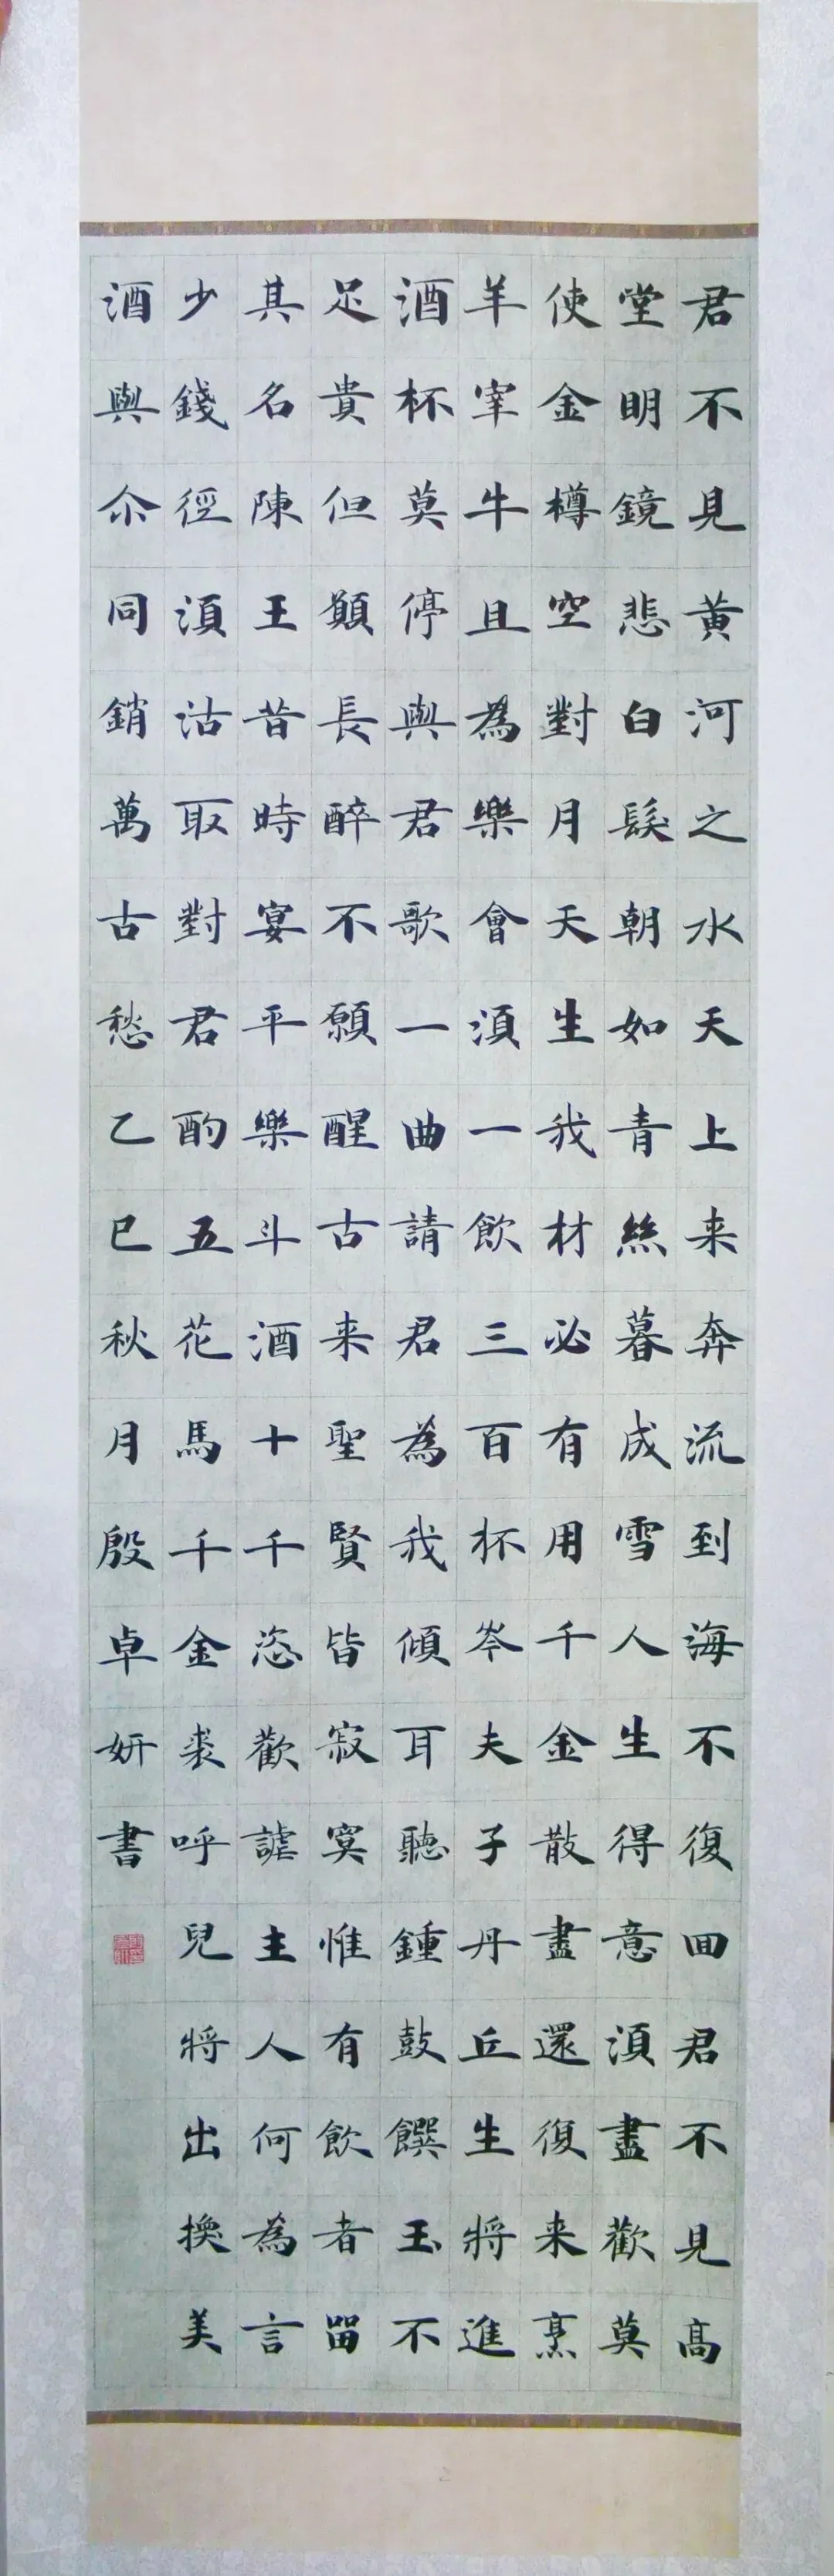 君不見黄河之水天上来奔流到海不復回君不見高
堂明鏡悲白髮朝如青絲暮成雪人生得意須盡歡莫
使金樽空對月天生我材必有用千金散盡還復来烹
羊宰牛且為樂會須一飲三百杯岑夫子丹丘生將進
酒杯莫停與君歌一曲請君為我傾耳聽鍾鼓饌玉不
足貴但願長醉不願醒古来聖賢皆寂寞惟有飲者留
其名陳王昔時宴平樂斗酒十千恣歡謔主人何為言
少錢徑須沽取對君酌五花馬千金裘呼兒將出換美
酒與尒同銷萬古愁乙巳秋月殷卓妍書